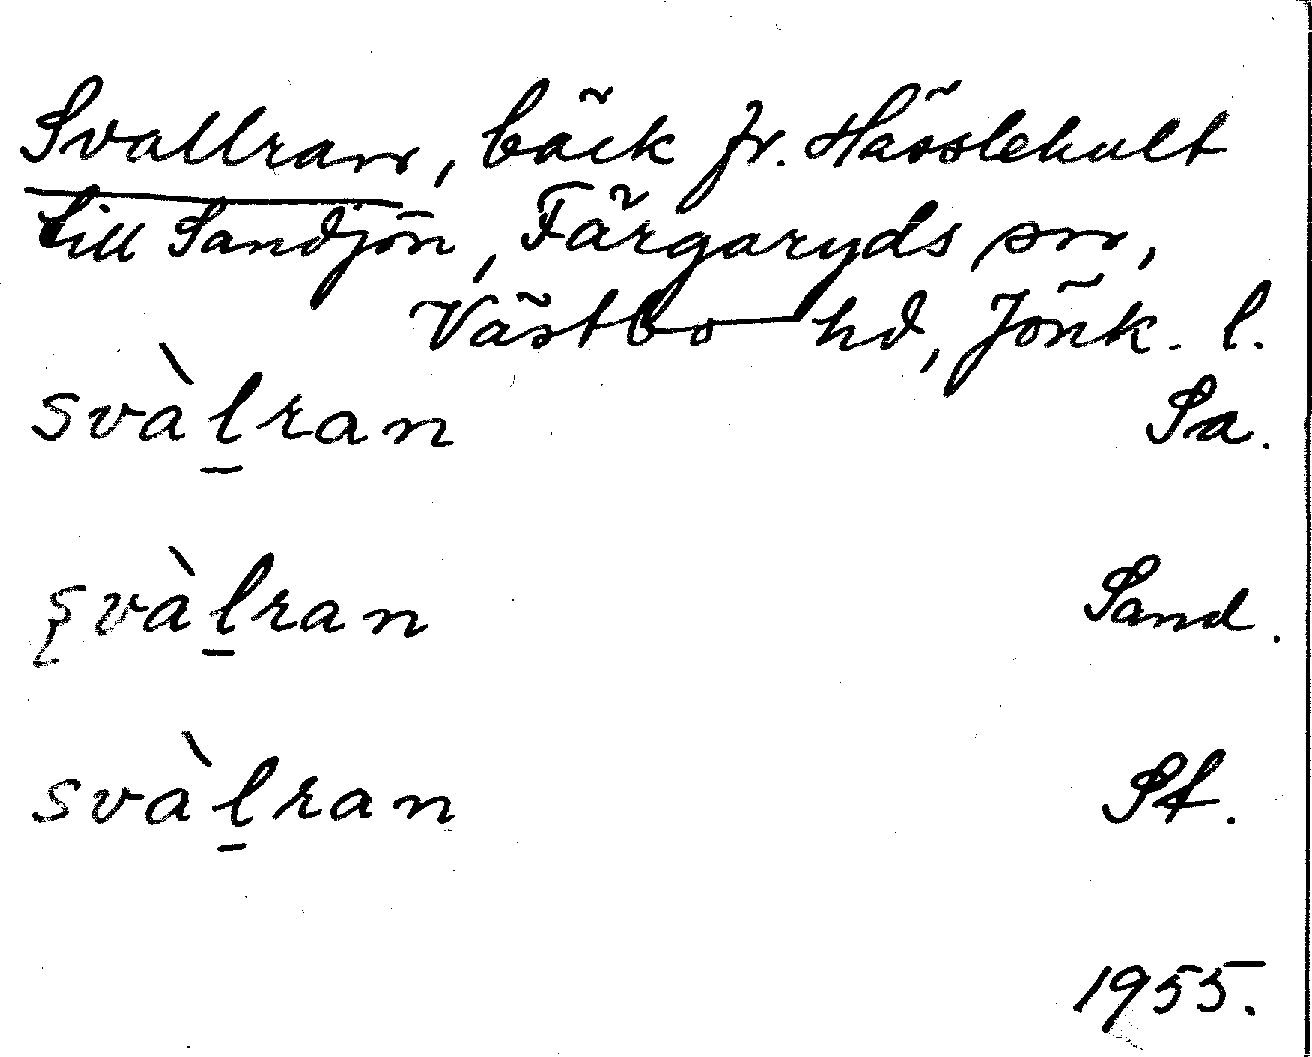 Svallran, bäck fr. Hässlehult
till Sandjön, Färgaryds sn,
Västbo hd, Jönk. l.
svàl̲ran Sa.
svàl̲ran Sand.
svàl̲ran St.
1955.